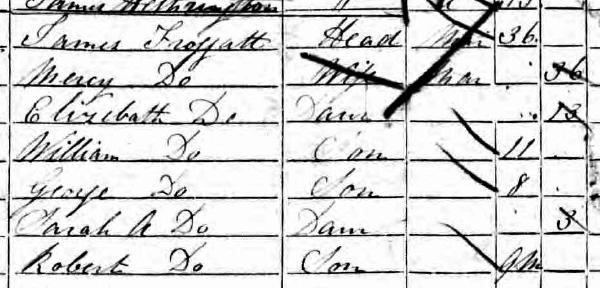 James Hethrington
James Froggatt Head Mar 36
Mercy Do Wife Mar 36
Elizebath Do Daur 13
William Do Son 11
George Do Son 8
Sarah A Do Daur 3
Robert Do Son 9m